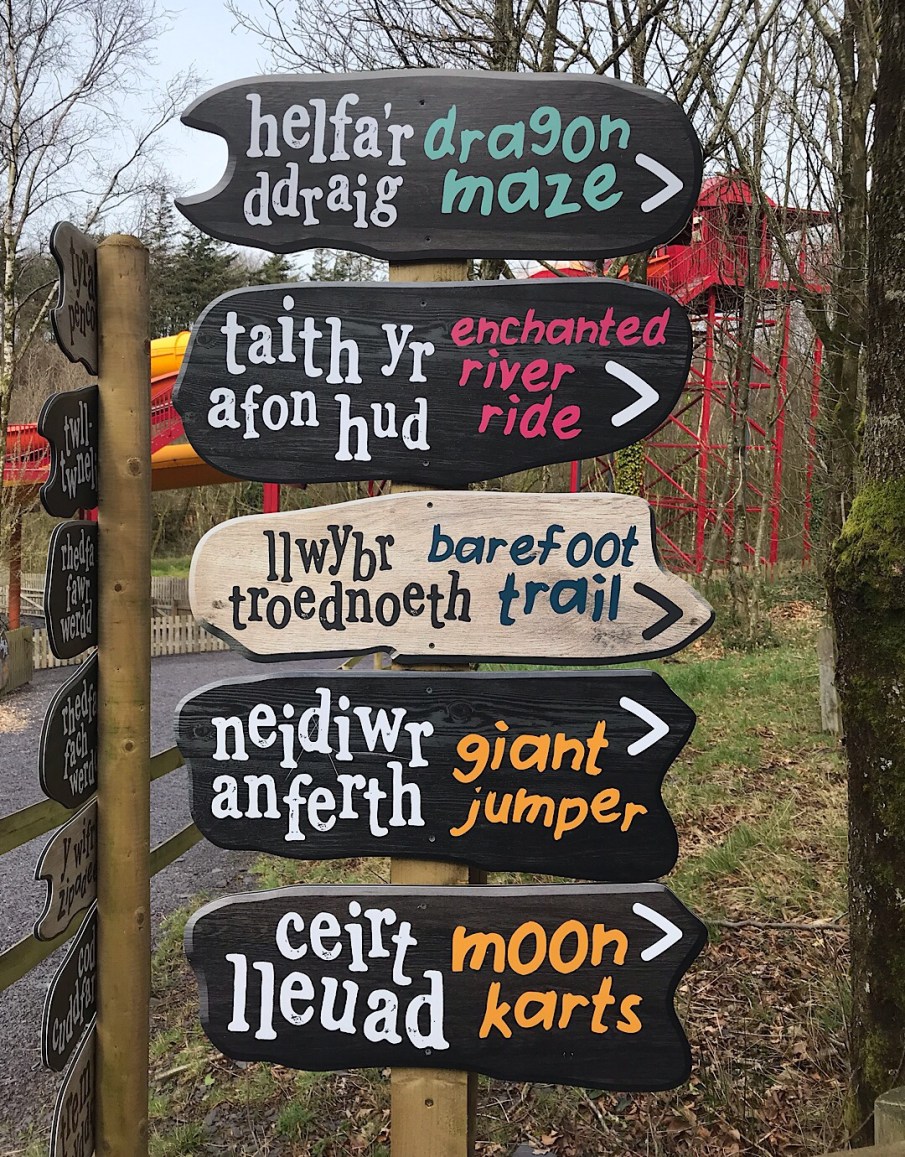 helfa'r
ddraig
dragon
maze
taith yr
afon hud
enchanted
river
ride
llwybr
troednoeth
barefoot
trail
neidiwr
anferth
giant
jumper
ceirt
lleuad
moon
karts
twll-
twnel
rhedfa
fawr
werdd
rhedfa
fach
werdd